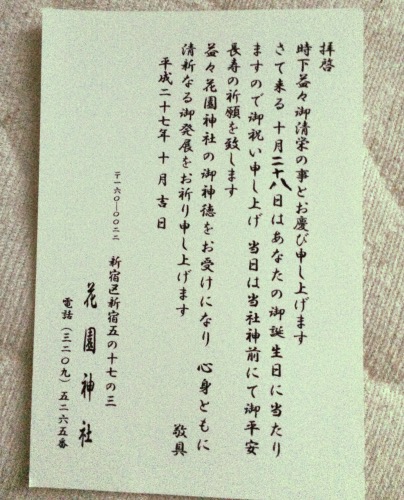 拝啓
時下益々御清栄の事とお慶び申し上げます
さて来る 十月二十八日はあなたの御誕生日に当たり
ますので御祝い申し上げ 当日は当社神前にて御平安
長寿の祈願を致します
益々花園神社の御神徳をお受けになり 心身ともに
清新なる御発展をお祈り申し上げます
敬具
平成二十七年 十月吉日
〒一六〇―〇〇二二
新宿区新宿五の十七の三
花園神社
電話(三二〇九)五二六五番